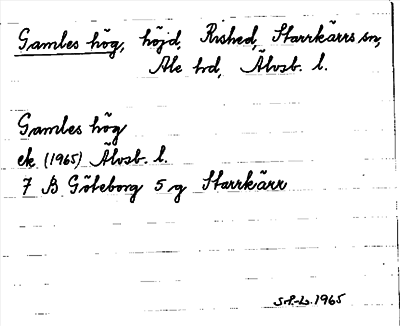 Gamles hög, höjd, Rished, Starrkärrs sn,
Ale hd, Älvsb. l.
Gamles hög
ek (1965) Älvsb. l.
7 B Göteborg 5 g Starrkärr
1965